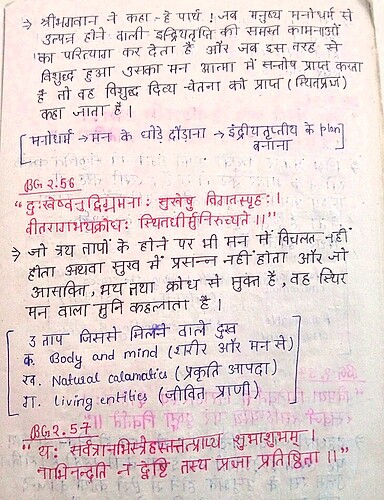 → श्रीभगवान ने कहा - हे पार्थ! जब मनुष्य मनोधर्म से
उत्पन्न होने वाली इन्द्रियतृप्ति की समस्त कामनाओं
का परित्याग कर देता है और जब इस तरह से
विशुद्ध हुआ उसका मन आत्मा में सन्तोष प्राप्त करता
है तो वह विशुद्ध दिव्य चेतना को प्राप्त (स्थितप्रज्ञ)
कहा जाता है।
[मनोधर्म → मन के घोड़े दौड़ाना → इंद्रियतृप्तीय के plan
बनाना]
BG 2.56
“दुःखेष्वनुद्विग्नमनाः सुखेषु विगतस्पृहः।
वीतरागभयक्रोधः स्थितधीर्मुनिरुच्यते॥”
→ जो त्रय तापों के होने पर भी मन में विचलित नहीं
होता अथवा सुख में प्रसन्न नहीं होता और जो
आसक्ति, भय तथा क्रोध से मुक्त है, वह स्थिर
मन वाला मुनि कहलाता है।
[3 ताप जिससे मिलने वाले दुख
क. Body and mind (शरीर और मन से)
ख. Natural calamatics (प्रकृति आपदा)
ग. Living entities (जीवित प्राणी)]
BG 2.57
“यः सर्वत्रानभिस्नेहस्तत्तत्प्राप्य शुभाशुभम्।
नाभिनन्दति न द्वेष्टि तस्य प्रज्ञा प्रतिष्ठिता॥”